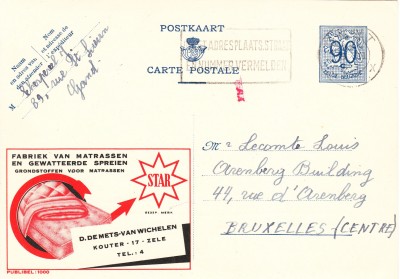 POSTKAART
CARTE POSTALE
90
ADRES PLAATS, STRAAT
EN NUMMER VERMELDEN
Naam
en adres van
de afzender
Nom
et adresse de
l'expéditeur
M
89, rue St
Gand
Mr Lecomte Louis
Arenberg Building
44, rue d'Arenberg
BRUXELLES (CENTRE)
FABRIEK VAN MATRASSEN
EN GEWATTEERDE SPREIEN
GRONDSTOFFEN VOOR MATRASSEN
STAR
D. DEMETS-VAN WICHELEN
KOUTER - 17 - ZELE
TEL.: 4
PUBLIBEL: 1060